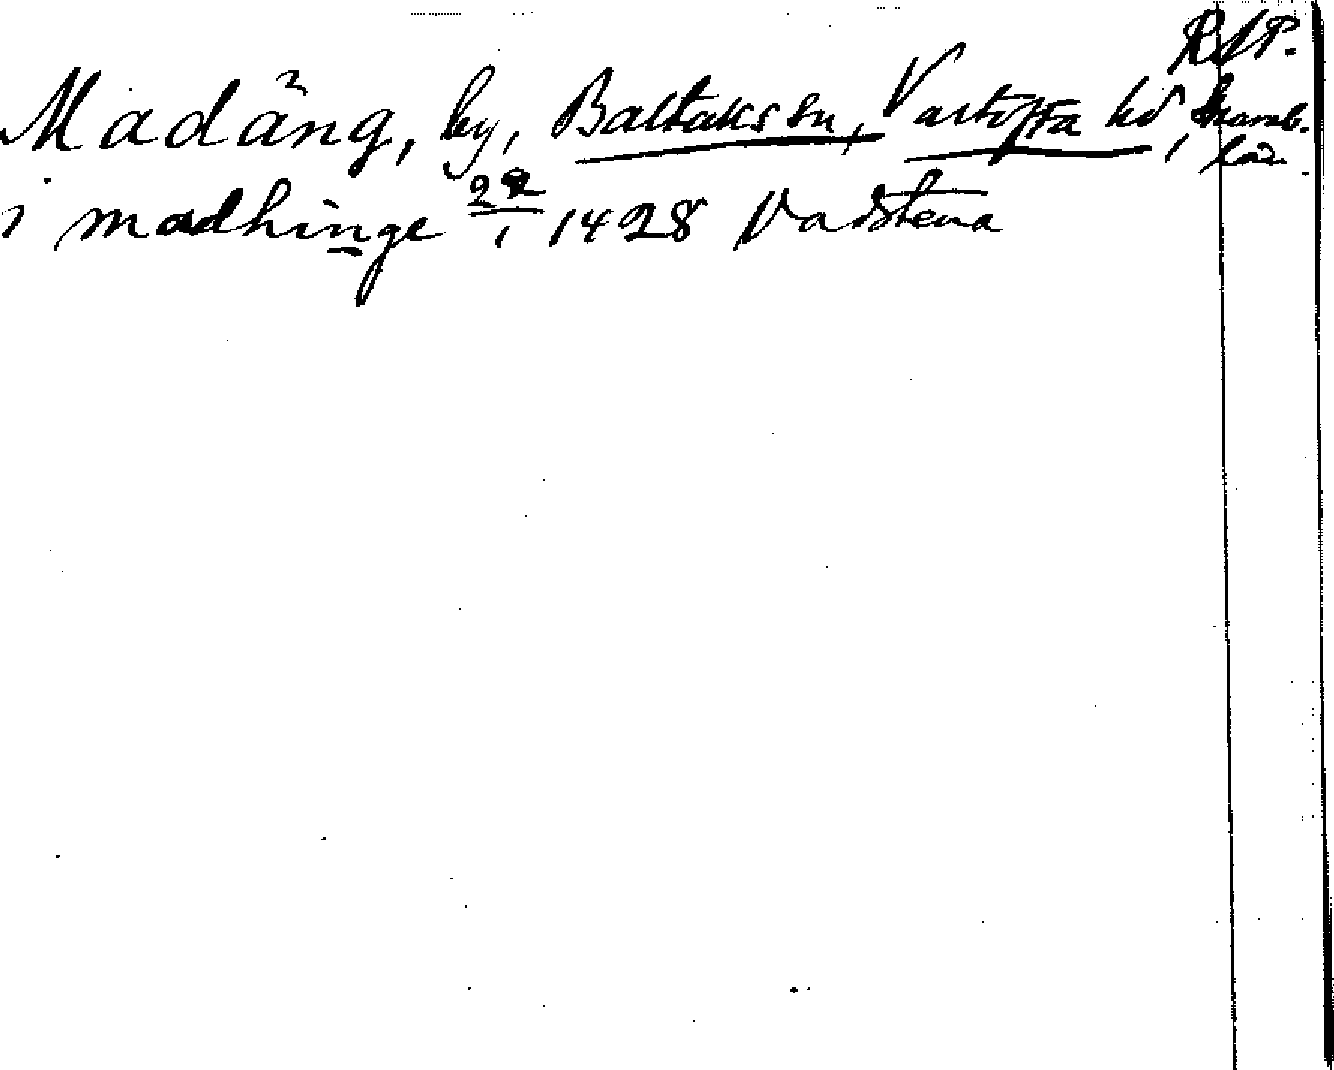 RAP.
Madäng, by, Baltaks sn, Vartofta hd, Skarab.
län
i madhinge 29/1 1428 Vadstena